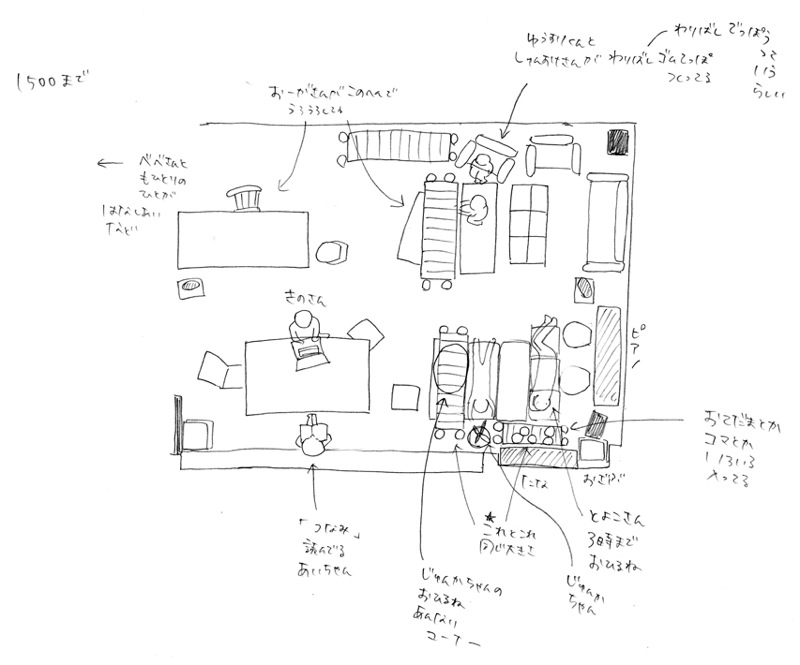 1500まで
おーがさんがこのへんで
うろうろしてる
ゆうすけくんと
しゅんすけさんが わりばしゴムてっぽ
つくってる
わりばしでっぽう
って
いう
らしい
べべさんと
もひとりの
ひとが
はなしあい
など
きのさん
ピアノ
おてだまとか
コマとか
いろいろ
やってる
たな
おざぶ
「つなみ」
読んでる
あいちゃん
★
これとこれ
同じ大きさ
とよこさん
3時まで
おひるね
じゅんか
ちゃん
じゅんかちゃんの
おひるね
あんない
コーナー